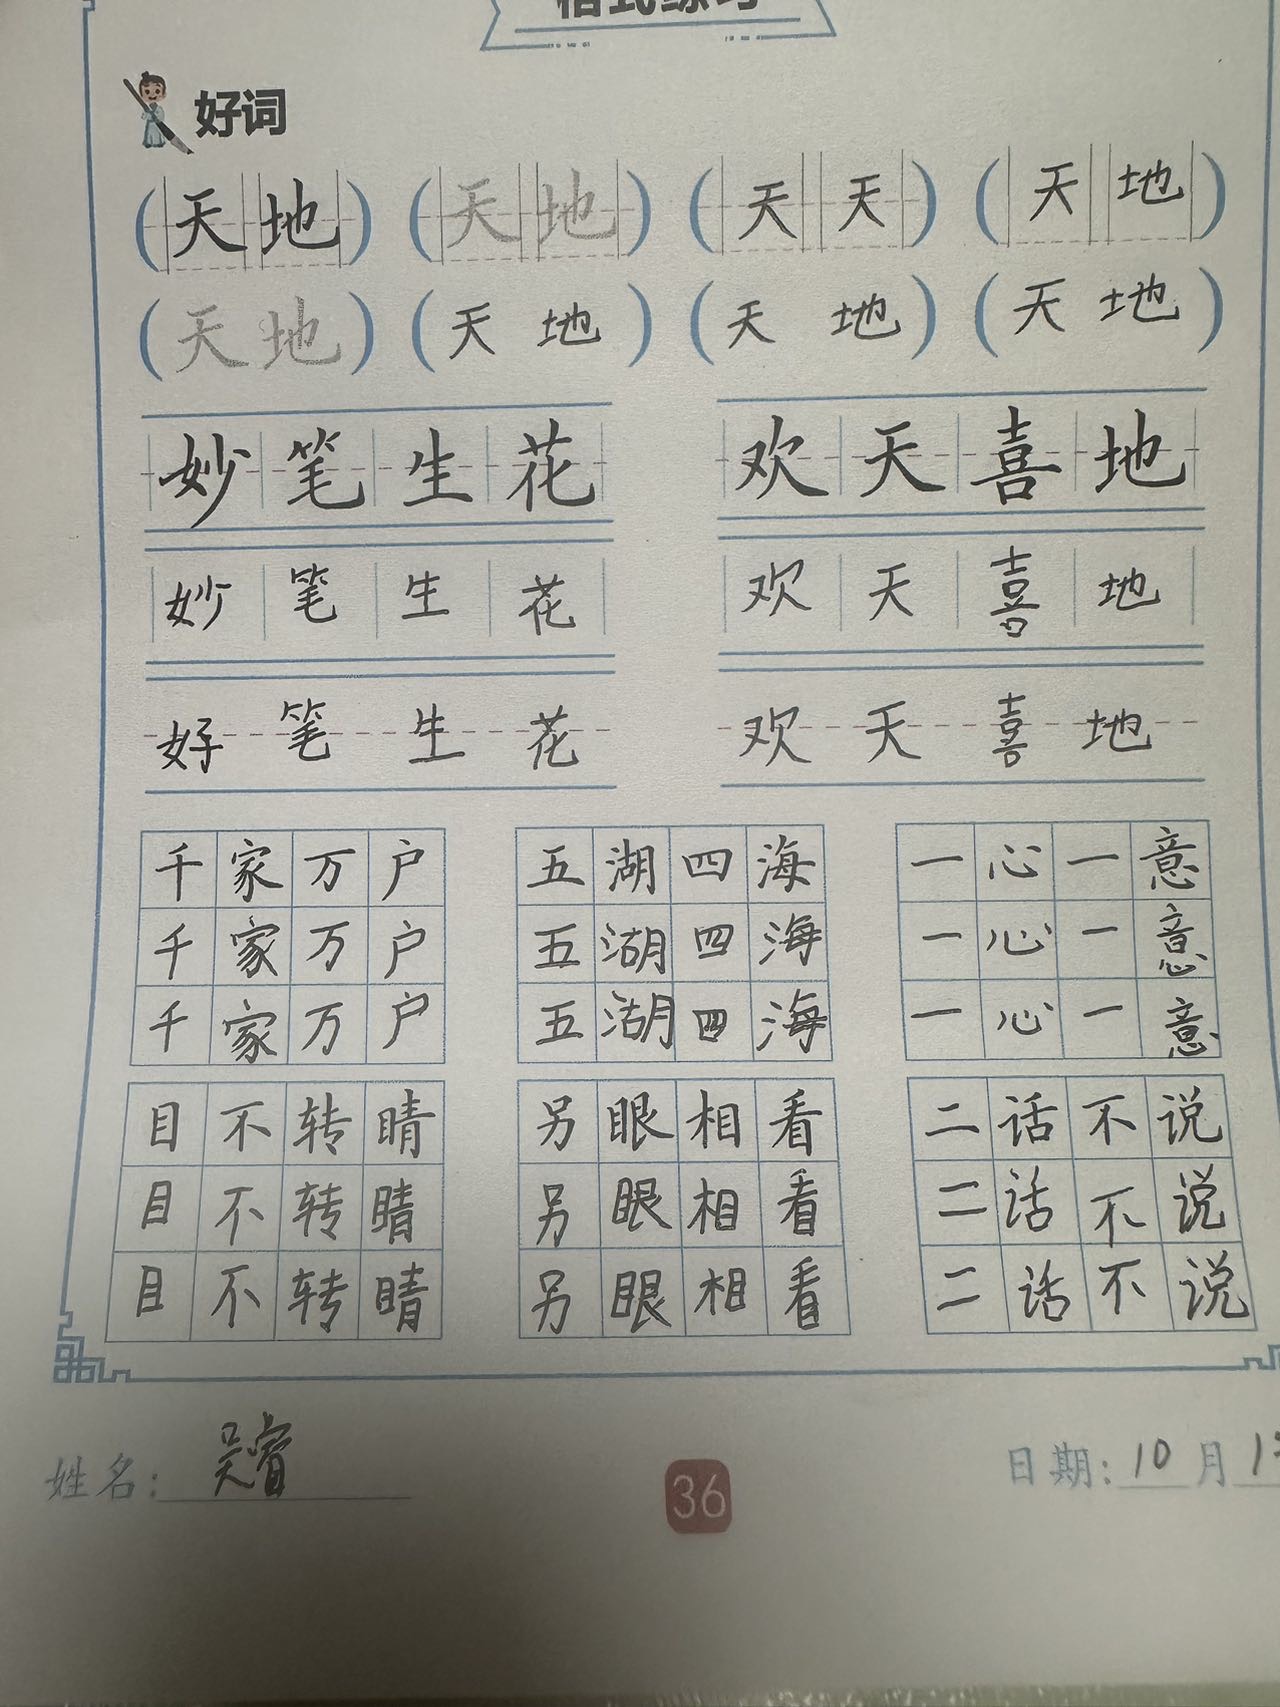 格式练习
好词
(天地) (天地) (天天) (天地)
(天地) (天地) (天地) (天地)
妙笔生花 欢天喜地
妙笔生花 欢天喜地
好笔生花 欢天喜地
千家万户 五湖四海 一心一意
千家万户 五湖四海 一心一意
千家万户 五湖四海 一心一意
目不转睛 另眼相看 二话不说
目不转睛 另眼相看 二话不说
目不转睛 另眼相看 二话不说
姓名: 吴睿 36 日期: 10月1